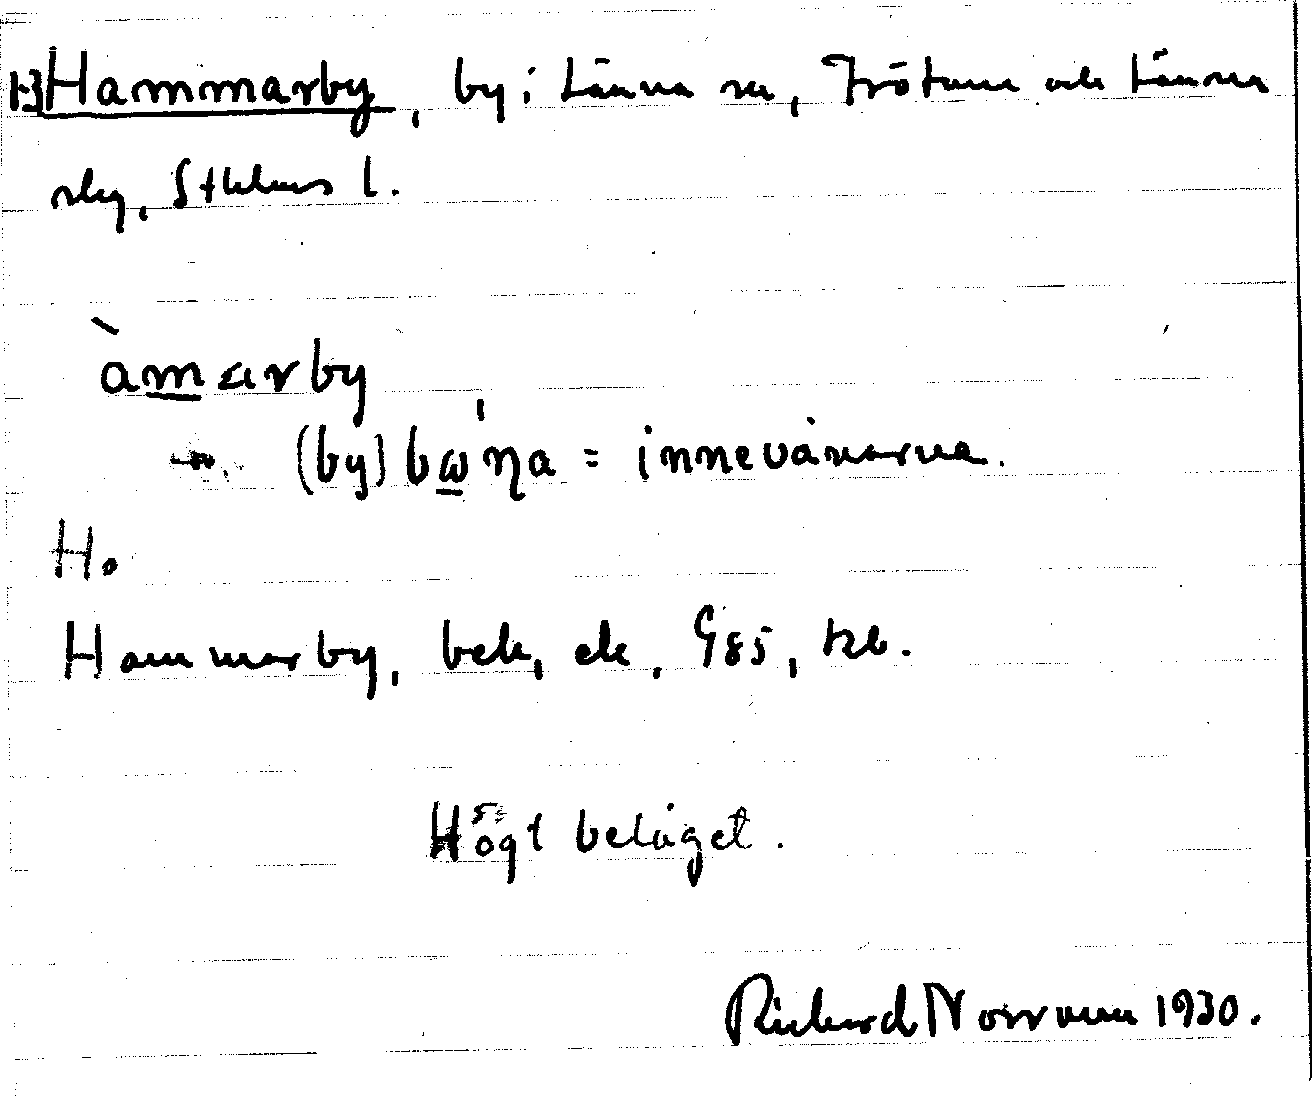 Hammarby, by i Länna sn, Frötuna och Länna
slg, Sthlms l.
àmarby
(by)bωηa = innevånarna.
H.
Hammarby, bek, ek, G85, tzb.
Högt beläget.
Richard Norrman 1930.